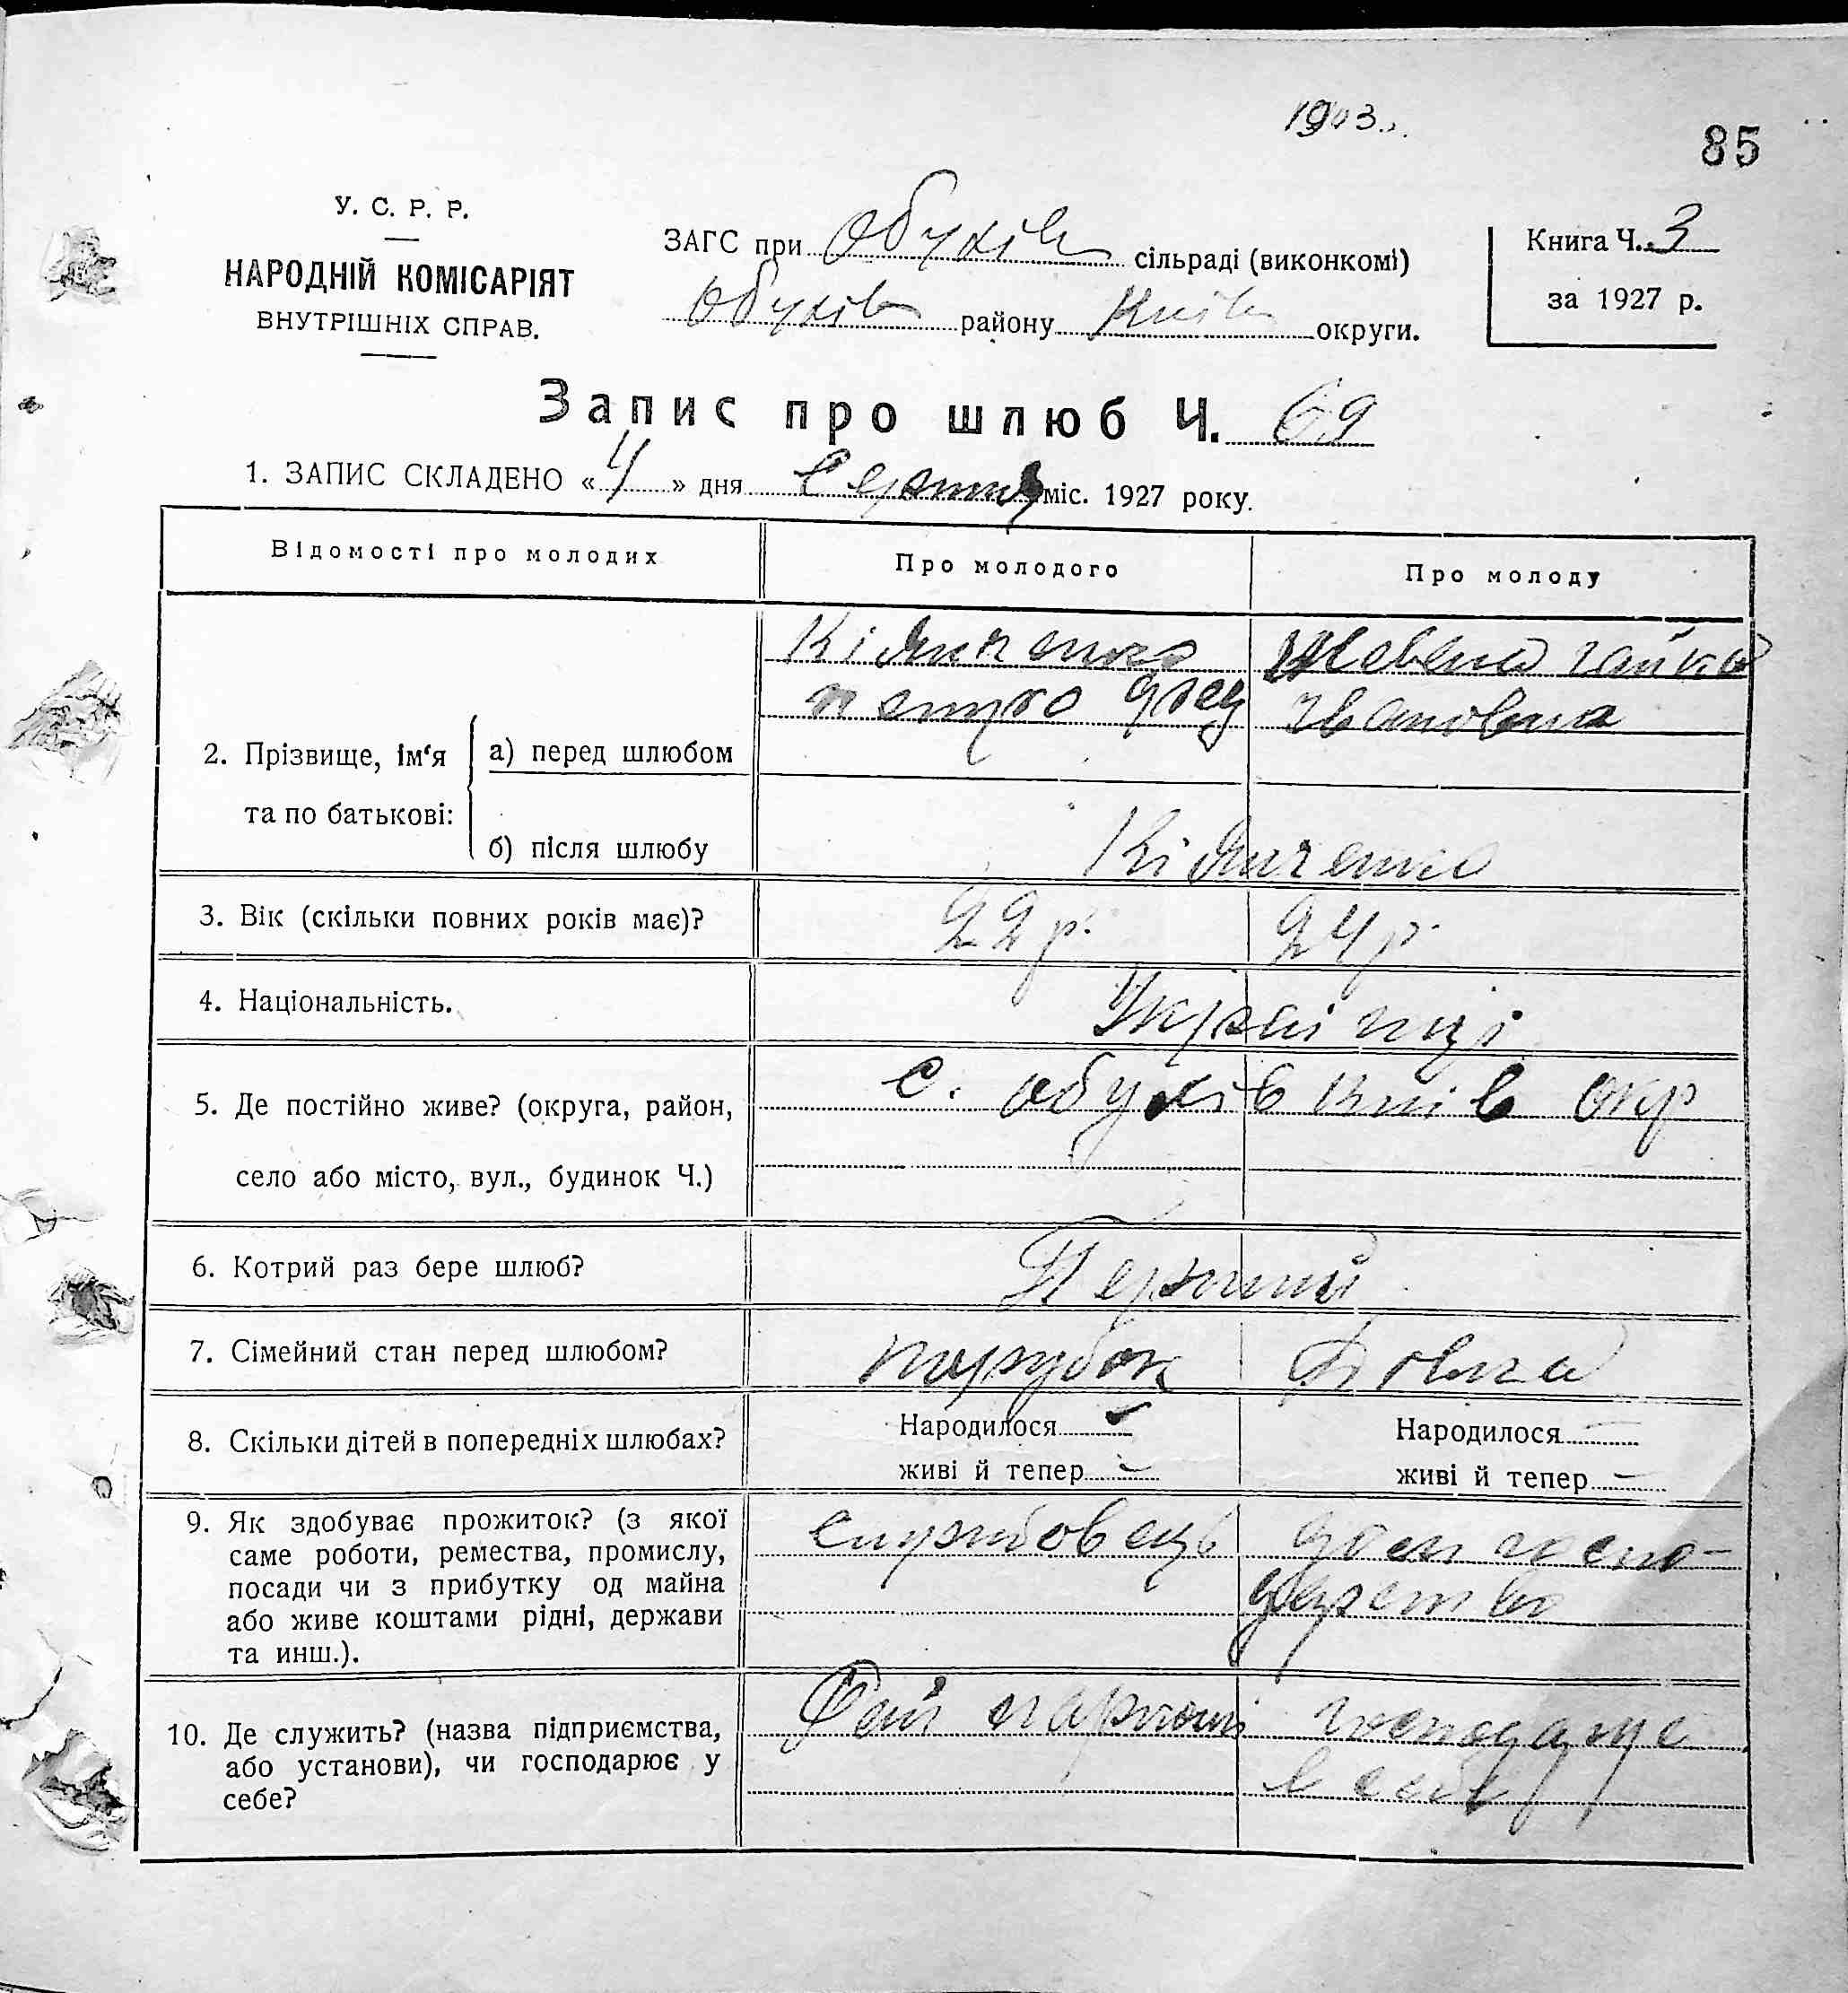 1903.
85
У. С. Р. Р.
НАРОДНІЙ КОМІСАРІЯТ
ВНУТРІШНІХ СПРАВ.
ЗАГС при Обухів сільраді (виконкомі)
Обухів району Київ округи.
Книга Ч. 3
за 1927 р.
Запис про шлюб Ч. 69
1. ЗАПИС СКЛАДЕНО « 4 » дня Серпня міс. 1927 року.
Відомості про молодих
Про молодого
Про молоду
2. Прізвище, ім‘я та по батькові:
а) перед шлюбом
Петро
Ївановна
б) після шлюбу
3. Вік (скільки повних років має)?
22 р.
24 р.
4. Національність.
Українці
5. Де постійно живе? (округа, район,
село або місто, вул., будинок Ч.)
с. Обухів Київ окр
6. Котрий раз бере шлюб?
Перший
7. Сімейний стан перед шлюбом?
парубок
Дівка
8. Скільки дітей в попередніх шлюбах?
Народилося –
живі й тепер –
Народилося –
живі й тепер –
9. Як здобуває прожиток? (з якої
саме роботи, ремества, промислу,
посади чи з прибутку од майна
або живе коштами рідні, держави
та инш.).
службовець
дом госпо-
дарство
10. Де служить? (назва підприємства,
або установи), чи господарює у
себе?
господарує
в себе